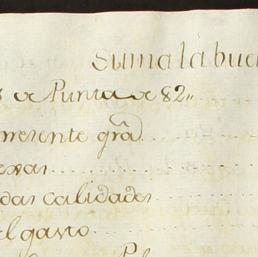 Suma la bue
de Punta de 82,,
presente grã
evas
das calidades
el gasto